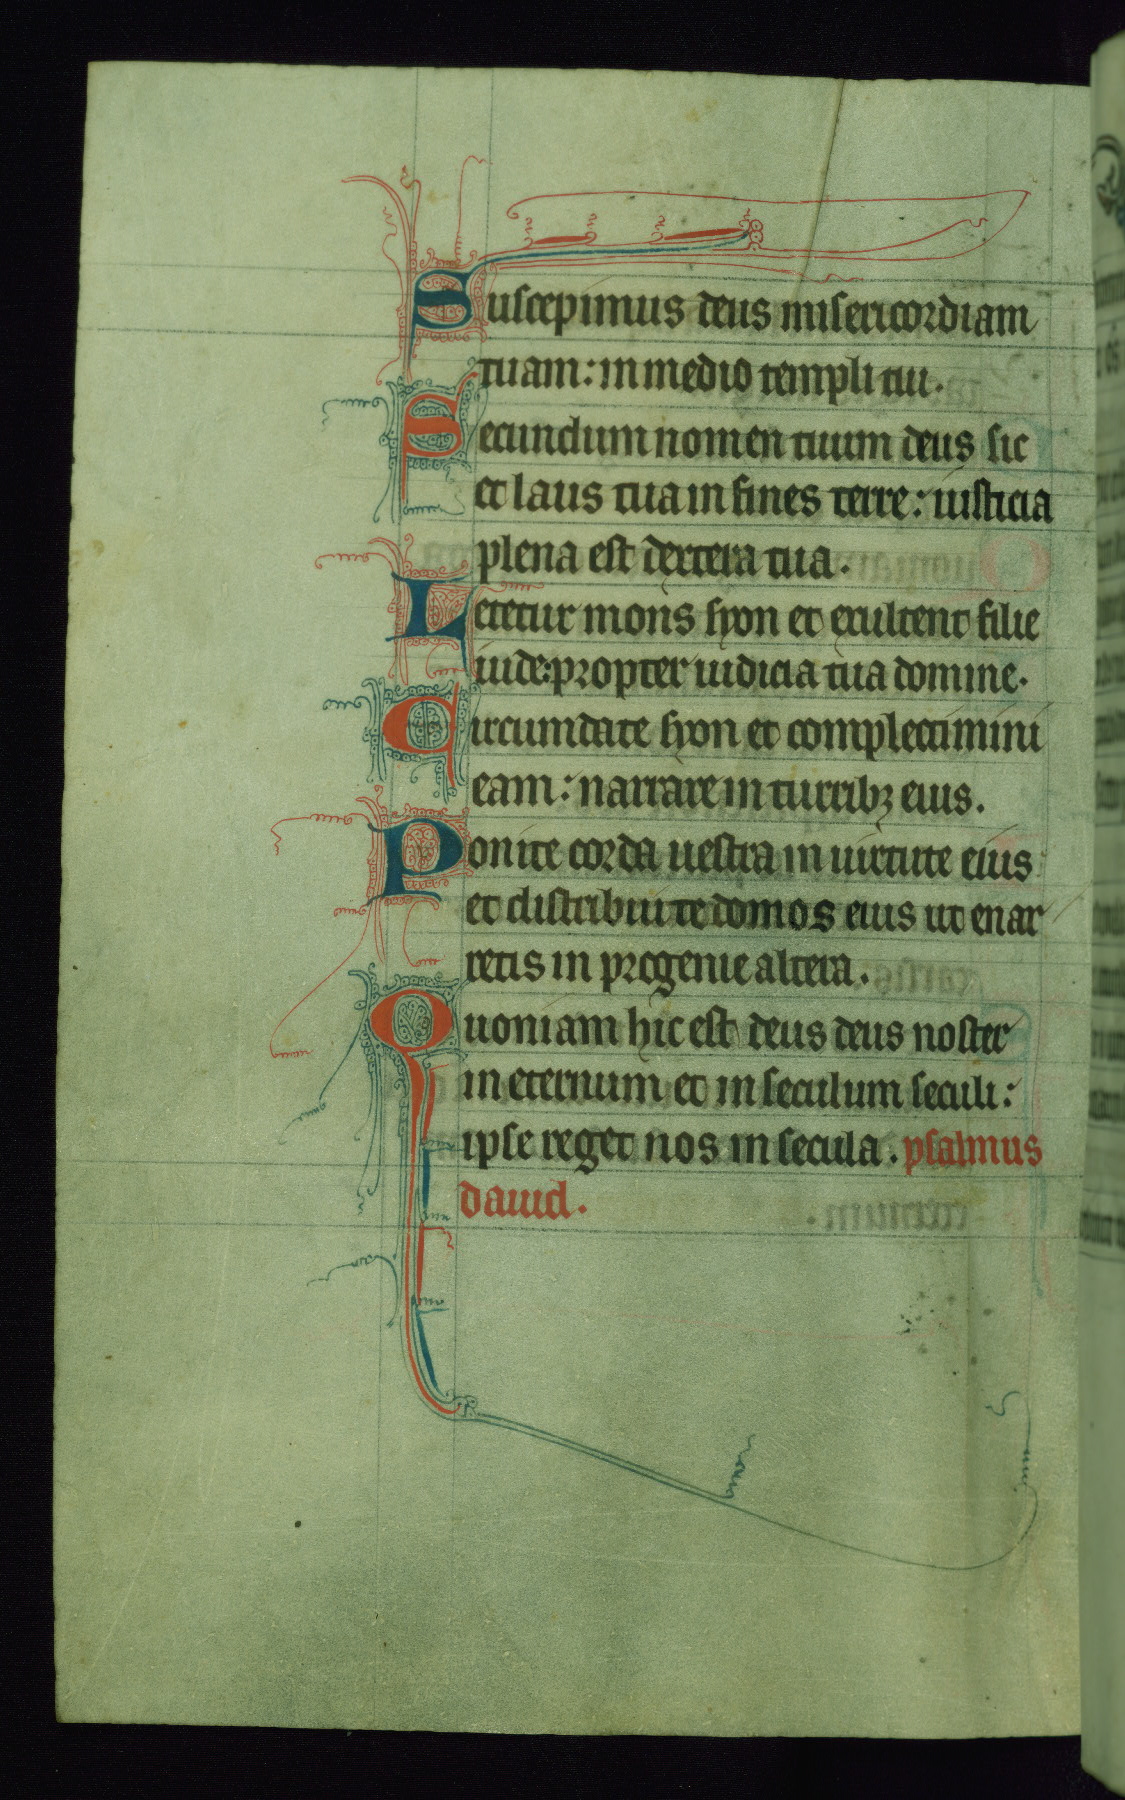 Suscepimus deus misericordiam
tuam: in medio templi tui.
Secundum nomen tuum deus sic
et laus tua in fines terre: iusticia
plena est dextera tua.
Letetur mons syon et exultent filie
iude: propter iudicia tua domine.
Circumdate syon et complectimini
eam: narrare in turribꝫ eius.
Ponite corda uestra in uirtute eius
et distribuite domos eius ut enar
retis in progenie altera.
Quoniam hic est deus deus noster
in eternum et in seculum seculi:
ipse reget nos in secula. psalmus
dauid.